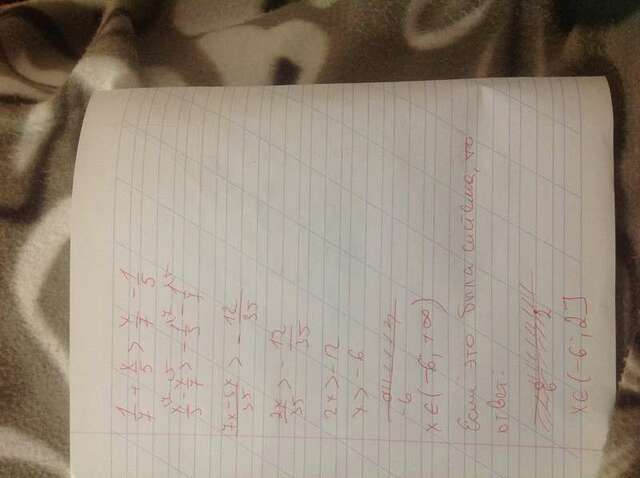 1/7 + x/5 > x/7 - 1/5
x/5 - x/7 > - 1/5 - 1/7
7x-5x/35 > - 12/35
2x/35 > - 12/35
2x > -12
x > -6
-6
x ∈ (-6; +∞)
Если это была система, то
ответ:
6 2
x ∈ (-6; 2]